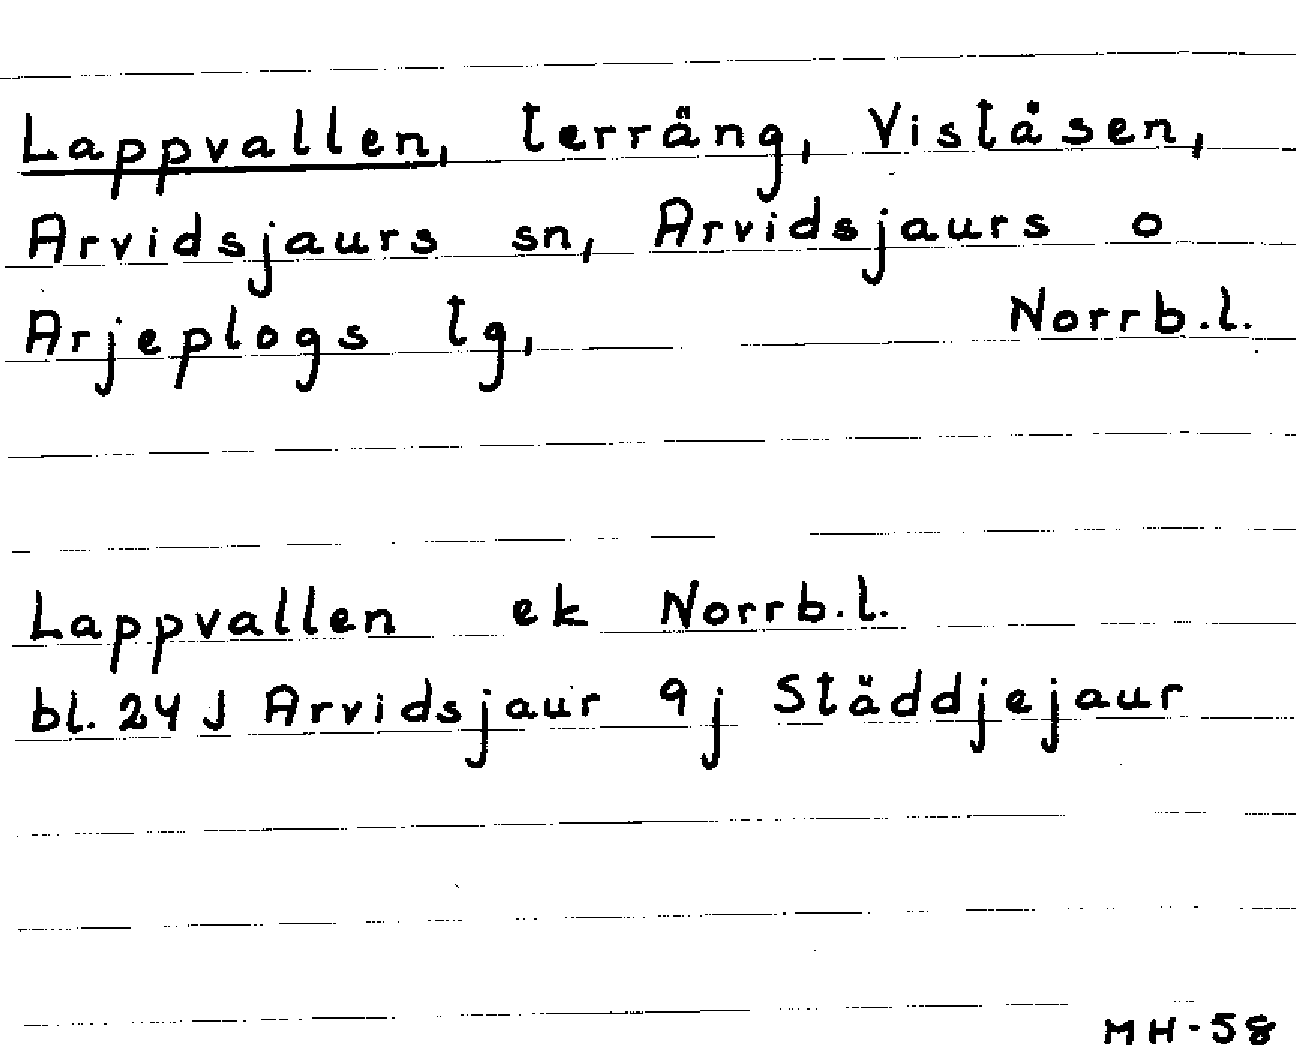 Lappvallen, terräng, Viståsen,
Arvidsjaurs sn, Arvidsjaurs o
Arjeplogs tg, Norrb.l.
Lappvallen ek Norrb.l.
bl. 24 J Arvidsjaur 9 j Städdjejaur
MH-58